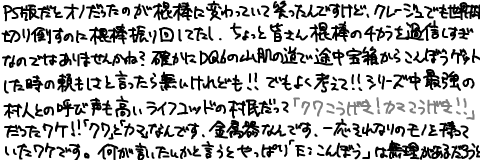 PS版だとオノだったのが棍棒に変わっていて笑ったんですけど、クレージュでも世界樹
切り倒すのに棍棒振り回してたし、ちょっと皆さん棍棒のチカラを過信しすぎ
なのではありませんかね?確かにDQ6の山肌の道で途中宝箱からこんぼうゲット
した時の頼もしさと言ったら無いけれども!!でもよく考えて!!シリーズ中最強の
村人との呼び声も高いライフコッドの村民だって「クワこうげき!カマこうげき!!」
だったワケ!!「クワ」とカマなんです、金属器なんです、一応それなりのモノを持って
いたワケです。何が言いたいかと言うとやっぱり「E:こんぼう」は無理があるだろうと